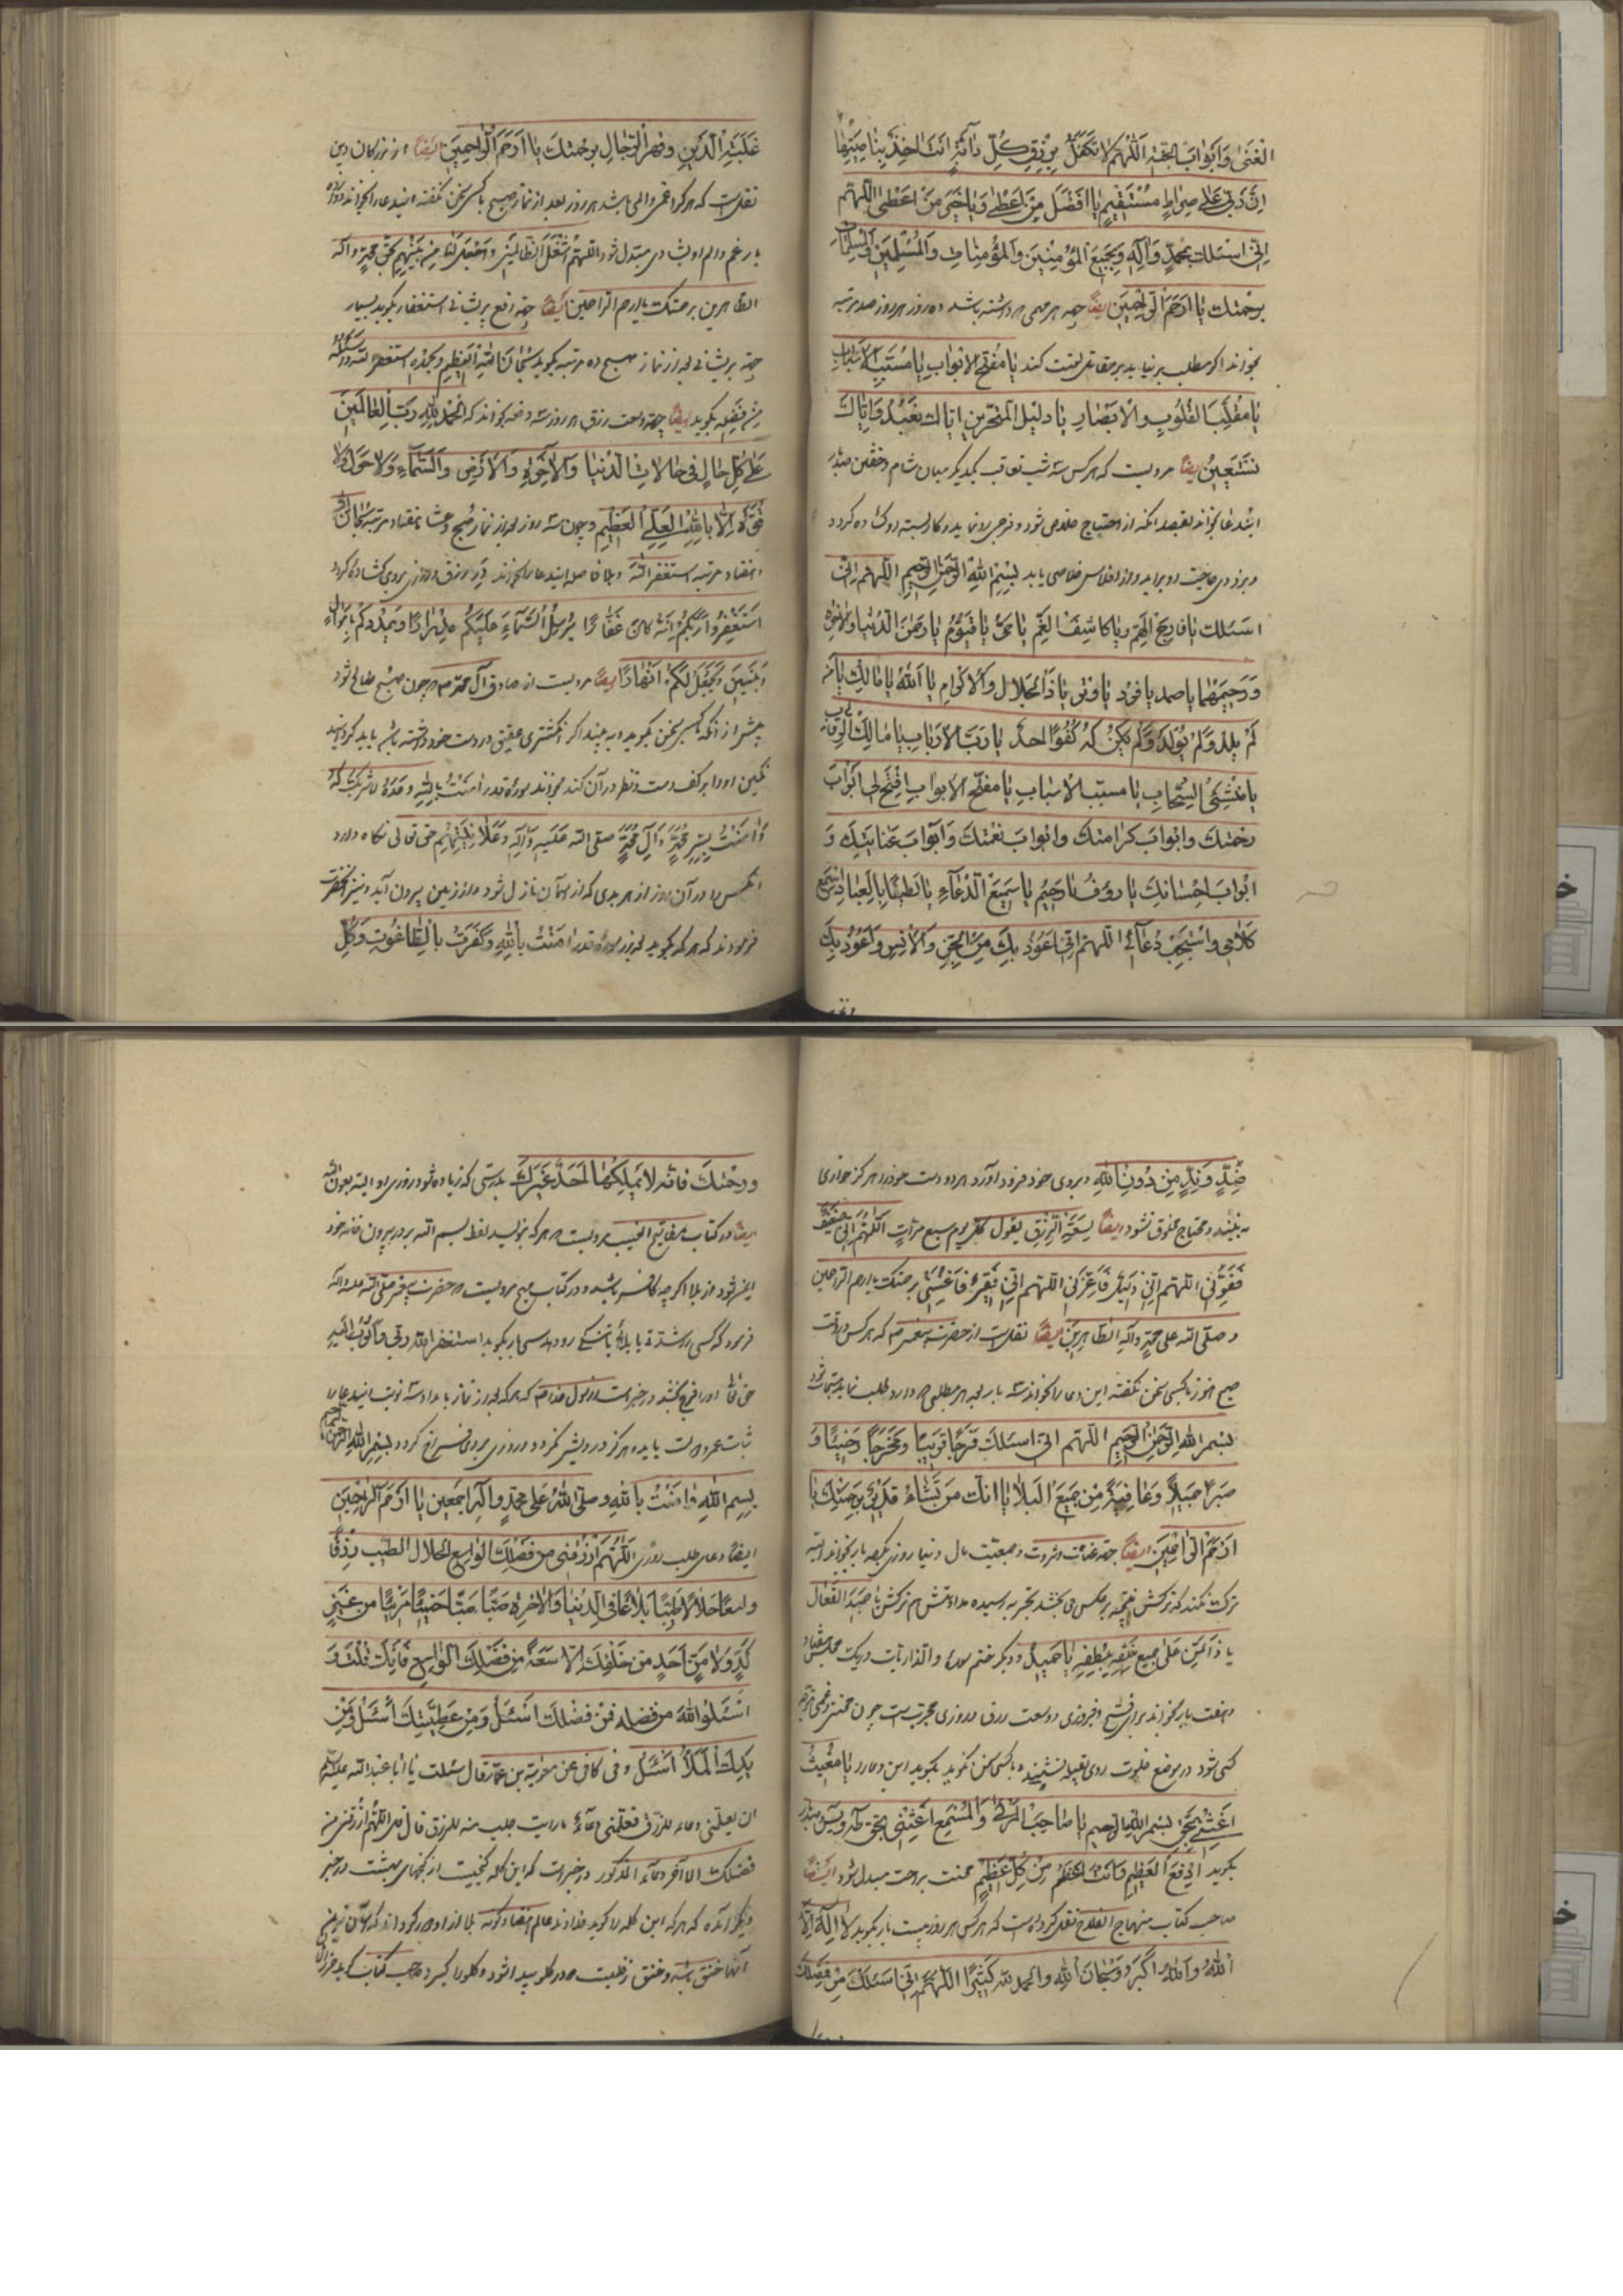 الغنى وابواب الجنة اللهم لا تكفل برزق كل دابة انت اخذ بناصيتها
ان ربي على صراط مستقيم يا افضل من اعطى ويا خير من اعطى اللهم
اني اسئلك بمحمد وآله وبجميع المؤمنين والمؤمنات والمسلمين والمسلمات
برحمتك يا ارحم الراحمين ايضا جهة هر مهمی که داشته باشد ده روز هر روز صد مرتبه
بخواند اگر مطلب بر نیاید بر مقاتل لعنت کند یا مفتح الابواب یا مسبب الاسباب
یا مقلب القلوب والابصار یا دلیل المتحیرین ایاک نعبد وایاک
نستعین ایضا مرویست که هر کس سه شب تعاقب یکدیگر میان شام و خفتن
این دعا بخواند بقصد آنکه از احتیاج خلاص شود و فرجی رو نماید و کار بسته او گشاده گردد
بزودی حاجت او براید و از افلاس خلاصی یابد بسم الله الرحمن الرحیم اللهم انی
اسئلک یا فارج الهم ویا کاشف الغم یا حی یا قیوم یا رحمن الدنیا والاخرة
ورحیمهما یا صمد یا فرد یا وتر یا ذا الجلال والاکرام یا الله یا مالک یا من
لم یلد ولم یولد ولم یکن له کفوا احد یا رب الارباب یا مالک الرقاب
یا منشئ السحاب یا مسبب الاسباب یا مفتح الابواب افتح لی ابواب
رحمتک وابواب کرامتک وابواب نعمتک وابواب عنایتک و
ابواب احسانک یا رؤف یا رحیم یا سمیع الدعاء یا لطیفا بالعباد اسمع
کلامی واستجب دعائی اللهم انی اعوذ بک من الجن والانس واعوذ بک
غلبة الدین وقهر الرجال برحمتک یا ارحم الراحمین ایضا از بزرکان دین
نقلست که هر کرا غمی و المی باشد هر روز بعد از نماز صبح با کسی سخن نکفته این دعا را بخواند
بار غم و الم او بشادی مبتدل شود اللهم اشغل الظالمین واجعلنا من بینهم بحق محمد وآله
الطاهرین برحمتک یا ارحم الراحمین ایضا جهة رفع پریشانی استغفار بکوید بسیار
جهة پریشانی بعد از نماز صبح ده مرتبه بکوید سبحان الله العظیم وبحمده استغفر الله واسئله
من فضله بکوید ایضا جهة وسعت رزق هر روز سه دفعه بخواند که الحمد لله رب العالمین
علی کل حال فی حالات الدنیا والاخرة والارض والسماء ولا حول ولا
قوة الا بالله العلی العظیم و چون سه روز بعد از نماز صبح و عشا هفتاد مرتبه سبحان الله
و هفتاد مرتبه استغفر الله و بلا فاصله این دعا را بخواند در رزق و روزی بروی کشاده کردد
استغفروا ربکم انه کان غفارا یرسل السماء علیکم مدرارا ویمددکم باموال
وبنین ویجعل لکم انهارا ایضا مرویست از صادق آل محمد که چون صبح طالع شود
پیش از آنکه با کسی سخن بکوید و به بیند اکر انکشتری عقیق در دست خود داشته باشد باید کرداند
نکین او را بر کف دست و نظر در آن کند بخواند سورة قدر امنت بالله وحده لا شریک له
وامنت بسر محمد وآل محمد صلی الله علیه وآله وعلانیتهم حق تعالی نکاه دارد
آنکس را در آن روز از هر بدی که از آسمان نازل شود و از زمین بیرون آید و نیز آنحضرت
فرمودند که هر که بکوید بعد از سورة قدر امنت بالله وکفرت بالطاغوت وکل
ضد وند من دون الله و بروی خود فرود آورد هر دو دست خود را هرکز خواری
نه بیند و محتاج مخلوق نشود ایضا لسعة الرزق یقول کل یوم سبع مرات اللهم انی ضعیف
فقونی اللهم انی ذلیل فاعزنی اللهم انی فقیر فاغننی برحمتک یا ارحم الراحمین
وصلی الله علی محمد وآله الطاهرین ایضا نقلست از حضرت پیغمبر که هر کس در وقت
صبح هنوز با کسی سخن نکفته این دعا را بخواند سه بار بعد هر مطلبی که دارد طلب نماید مستجاب شود
بسم الله الرحمن الرحیم اللهم انی اسئلک فرجا قریبا ومخرجا رحیبا و
صبرا جمیلا وعافیة من جمیع البلایا انک من تشاء قدیر برحمتک یا
ارحم الراحمین ایضا جهة غنا و ثروت و جمعیت مال دنیا روزی یکصد بار بخواند البته
ترک نکند که ترکش نتیجه بر عکس می بخشد بتجربه رسیده مداومتش نه ترکش یا حمید الفعال
یا ذا المن علی جمیع خلقه بلطفه یا حمید و دیکر ختم سورة والذاریات در یک مجلس هفتاد
و هفت بار بخواند برای فتح و فیروزی و وسعت رزق و روزی مجربست چون محنتی و غمی
کسی شود در موضع خلوت روی بقبله نشیند و با کسی سخن نکوید بکوید این دعا را یا مغیث
اغثنی بحق بسم الله الرحمن الرحیم یا صاحب المرئی والمستمع اغثنی بحق طه ویس
بکوید ادفع العظیم فانت اعظم من کل عظیم محنت براحت مبدل شود ایضا
صاحب کتاب منهاج الفلاح نقل کرده است که هر کس هر روز بیست بار بکوید لا اله الا
الله والله اکبر وسبحان الله والحمد لله کثیرا اللهم انی اسئلک من فضلک
ورحمتک فانه لا یملکها احد غیرک بدرستی که زیاده شود روزی او البته بعون الله
ایضا در کتاب مفاتیح الغیب مرویست که هر که بنویسد لفظ بسم الله بر در بیرون خانه خود
ایمن شود از بلا اکر چه کافر باشد و در کتاب مرویست که حضرت پیغمبر صلی الله علیه وآله
فرمود که کسی را شدتی یا بلائی یا تنکی رو دهد سی بار بکوید استغفر الله ربی واتوب الیه
حق تعالی او را فرج بخشد در خبر است از رسول خدا که هر که بعد از نماز بامداد سه نوبت این دعا را
ثبات عمر و دولت یابد و هرکز درویش نکردد و روزی بروی فراخ کردد بسم الله الرحمن الرحیم
بسم الله وامنت بالله وصلی الله علی محمد وآله اجمعین یا ارحم الراحمین
ایضا دعای طلب روزی اللهم ارزقنی من فضلک الواسع الحلال الطیب رزقا
واسعا حلالا طیبا بلاغا فی الدنیا والاخرة صبا صبا هنیئا مریئا من غیر
کد ولا من احد من خلقک الا سعة من فضلک الواسع فانک قلت و
اسئلوا الله من فضله فمن فضلک اسئل ومن عطیتک اسئل ومن
یدک الملا اسئل وفی کافی عن معویة بن عمار قال سئلت یا ابا عبد الله علیه السلام
ان یعلمنی دعاء للرزق فعلمنی دعاء ما رایت اجلب منه للرزق قال قل اللهم ارزقنی من
فضلک الی آخر دعاء المذکور در خبر است که این کلمه کنجیست از کنجهای بهشت در خبر
دیکر آمده که هر که این کلمه را بکوید خداوند عالم هفتاد کونه بلا از او دور کرداند که آسان ترین
آنها خنق باشد و خنق زحمتیست که در کلو پیدا شود و کلو را کیرد صاحب کتاب